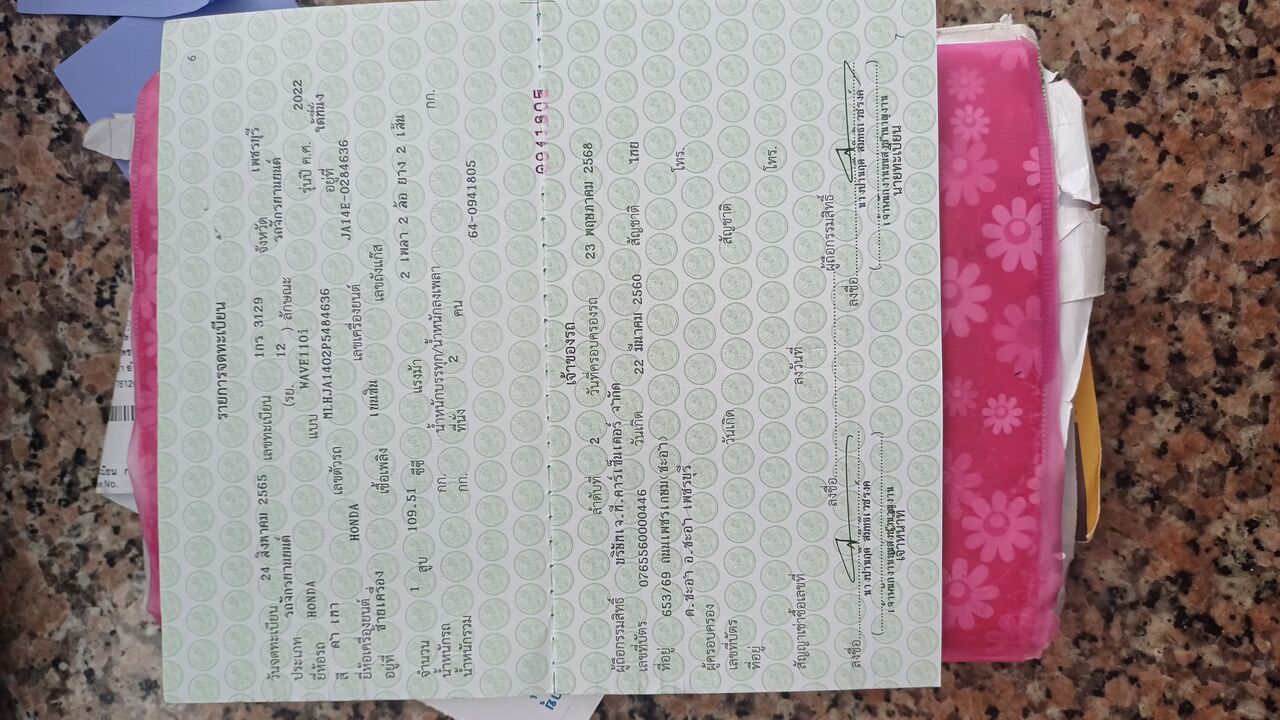 6
รายการจดทะเบียน
วันจดทะเบียน 24 สิงหาคม 2565 เลขทะเบียน 1กร 3129 จังหวัด เพชรบุรี
ประเภท รถจักรยานยนต์ (รย. 12 ) ลักษณะ รถจักรยานยนต์
ยี่ห้อรถ HONDA แบบ WAVE110i รุ่นปี ค.ศ. 2022
สี ดำ เทา เลขตัวรถ MLHJA1402P5484636 อยู่ที่ ใต้ที่นั่ง
ยี่ห้อเครื่องยนต์ HONDA เลขเครื่องยนต์ JA14E-0284636
อยู่ที่ ซ้ายเครื่อง เชื้อเพลิง เบนซิน เลขถังแก๊ส
จำนวน 1 สูบ 109.51 ซีซี แรงม้า 2 เพลา 2 ล้อ ยาง 2 เส้น
น้ำหนักรถ กก. น้ำหนักบรรทุก/น้ำหนักลงเพลา กก.
น้ำหนักรวม กก. ที่นั่ง 2 คน
64-0941805
0941805
เจ้าของรถ
ลำดับที่ 2 วันที่ครอบครองรถ 23 พฤษภาคม 2568
ผู้ถือกรรมสิทธิ์ บริษัทเจ.ที.คาร์เซ็นเตอร์ จำกัด
เลขที่บัตร 0765560000446 วันเกิด 22 มีนาคม 2560 สัญชาติ ไทย
ที่อยู่ 653/69 ถนนเพชรเกษม(ชะอำ) โทร.
ต.ชะอำ อ.ชะอำ เพชรบุรี
ผู้ครอบครอง
เลขที่บัตร วันเกิด สัญชาติ
ที่อยู่ โทร.
สัญญาเช่าซื้อเลขที่ ลงวันที่
ลงชื่อ ผู้ถือกรรมสิทธิ์
ลงชื่อ ลงชื่อ
เจ้าหน้าที่ นายทะเบียน